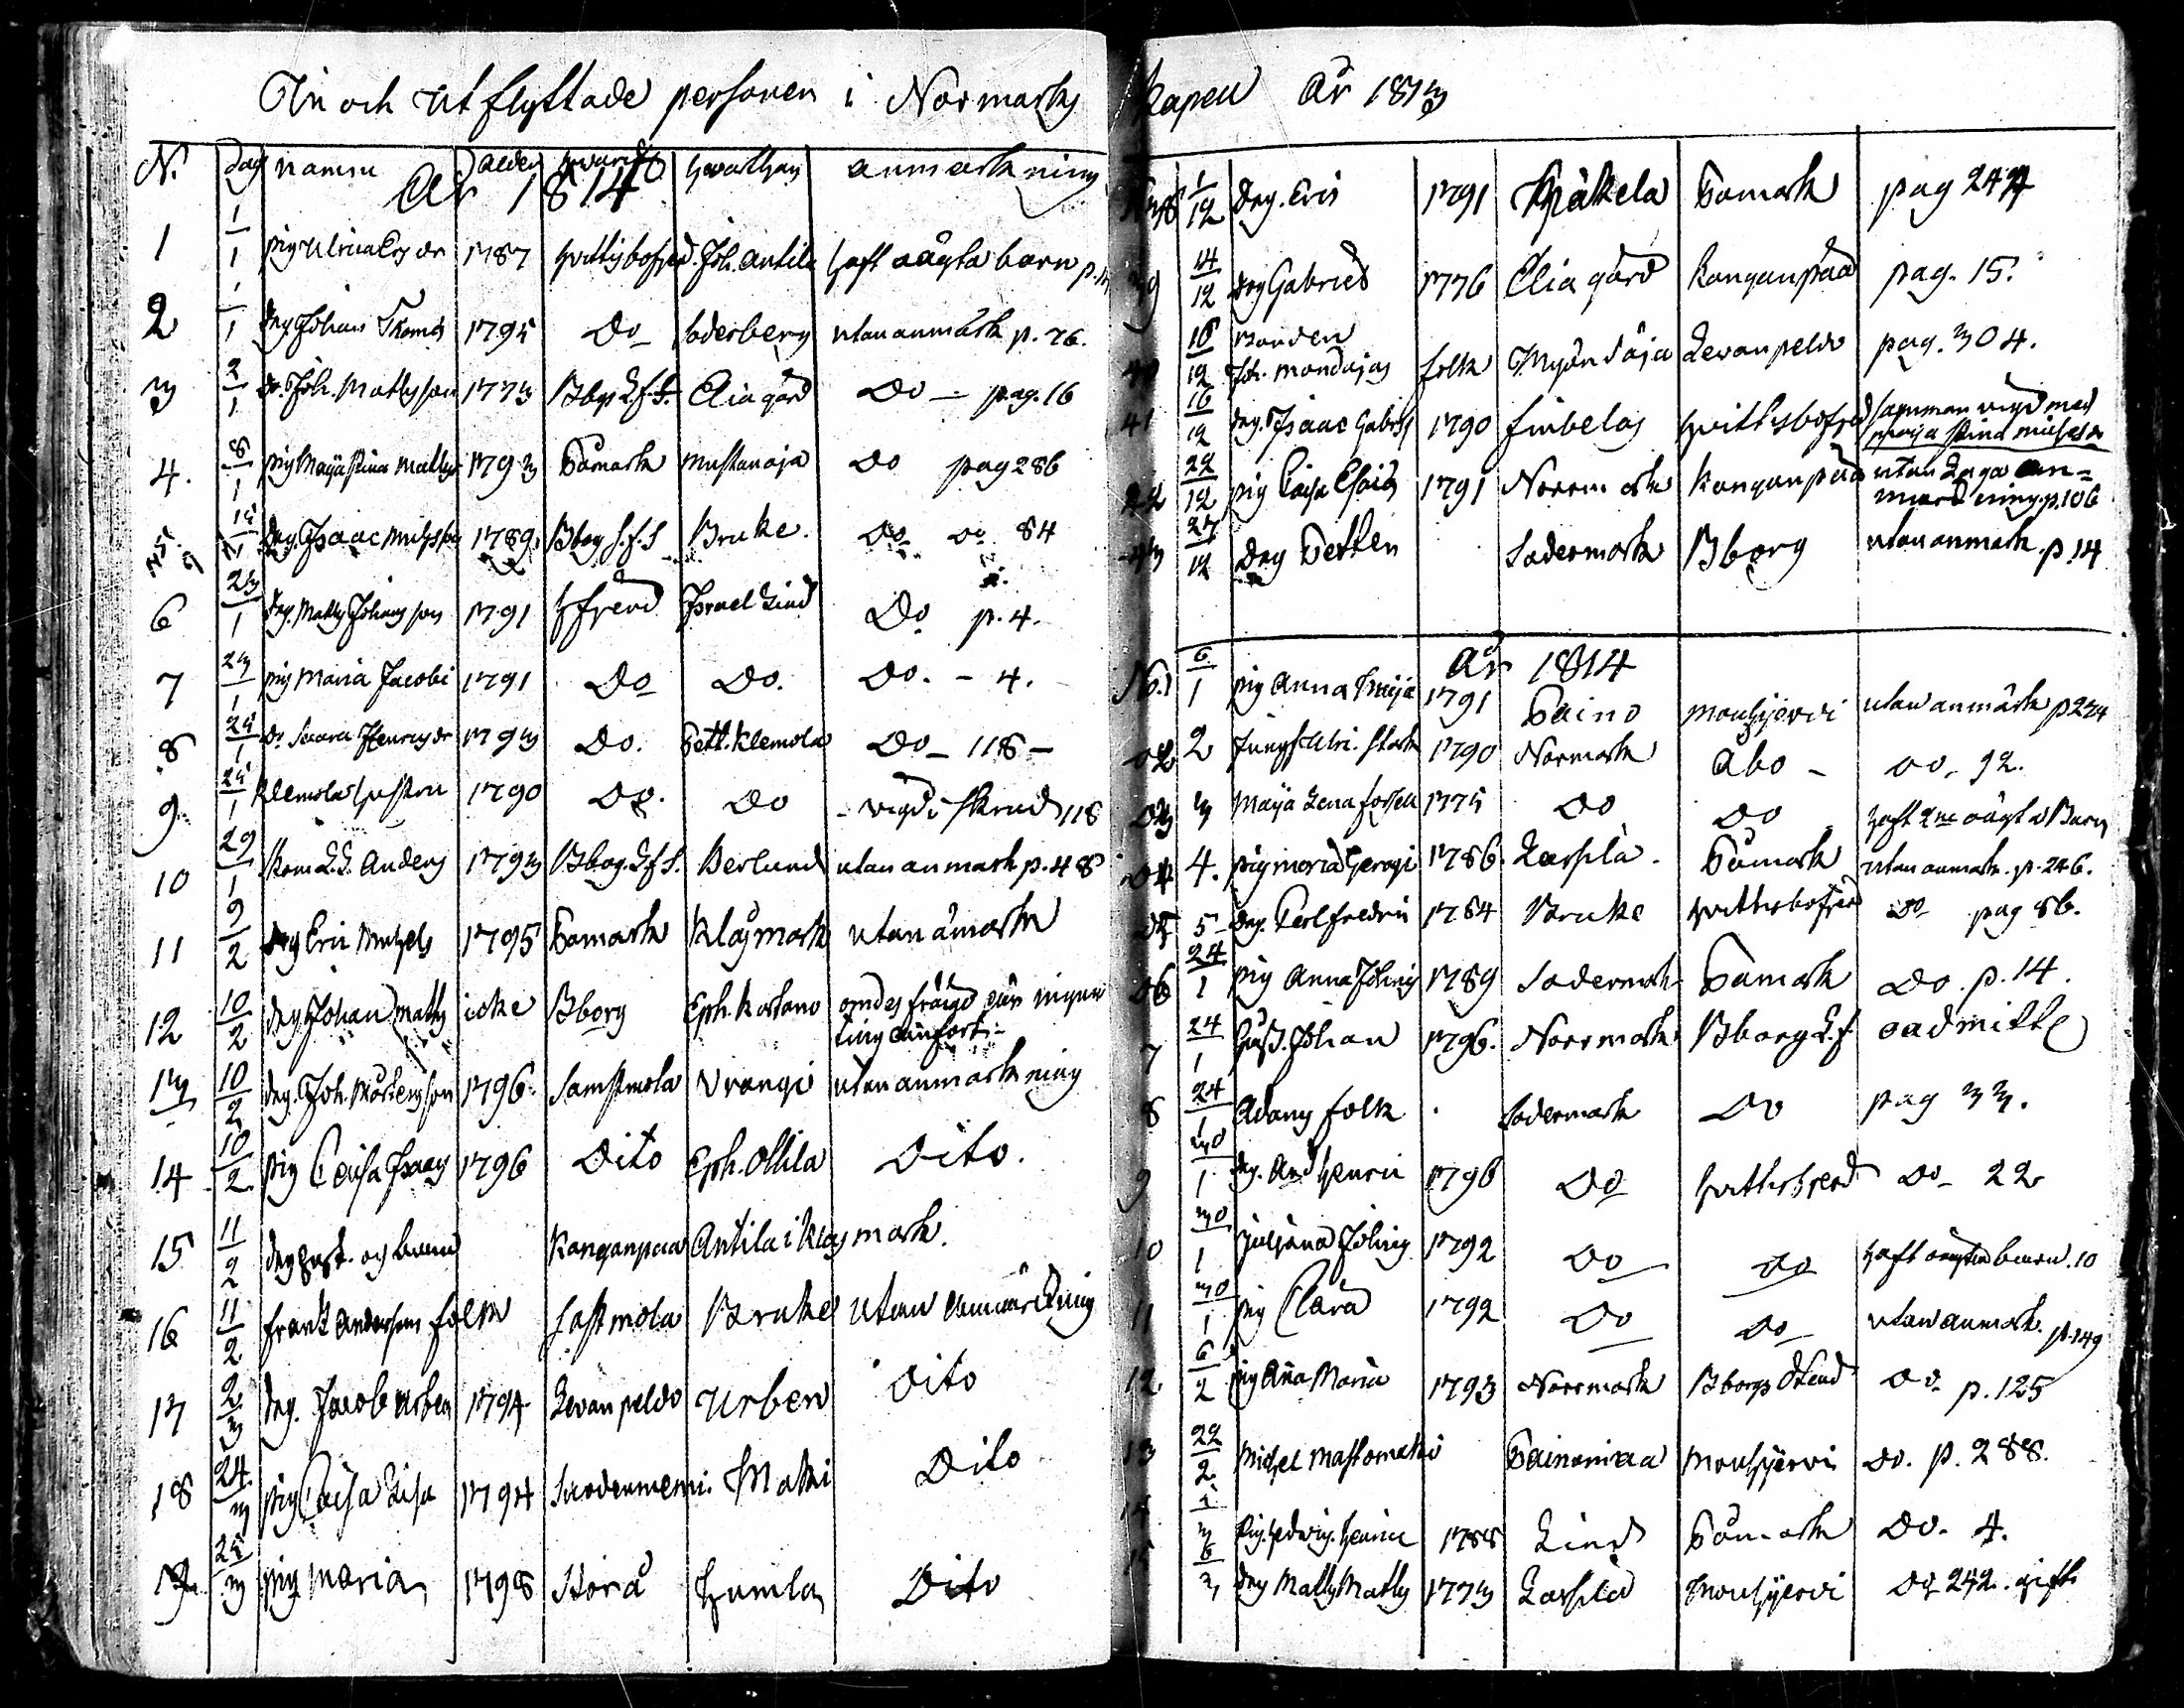 In och Utflyttade personer i Normarks
N:o dag namn alder hvarifr hvarthän anmärkning
År 1814
1 1/1 pig Ulrica Ersdr 1787 hvittisbofjerd Joh. Antila haft oägta barn p.
2 1/1 drg Johan Thomas 1795 Do Soderberg utan anmärk p. 76.
3 2/1 do. Joh. Mattsson 1773 Bborg L.f.S. Elia gård Do – pag. 16
4. 8/1 pig Maja Stina Matts 1793 Påmark Mustanoja Do pag 286
5 15/1 drg. Isaac Michelsson 1789. Bborg L.f.S Bruke. Do Do 84
6 23/1 drg. Matts Johansson 1791 hfjerd Israel Lind Do p. 4.
7 23/1 pig Maria Jacobi 1791 Do Do. Do. – 4.
8 25/1 do Saara Henrics dr 1793 Do. Pett. Klemola Do – 118 –
9. 25/1 Klemola hustru 1790 Do. Do – vigd i 118
10 29/1 L.S. Anders 1793 Bborg. L.f.S. Berlund utan anmark p. 48
11 9/2 drg Eric Michels 1795 Påmark Klåsmark utan amark
12 10/2 drg Johan Matts icke Bborg Eph. Kortano omdes frägd är ingen
ting anfört –
13 10/2 drg. Joh. Mårtensson 1796 Sastmola Vrangi utan anmarkning
14 10/2 pig Caisa Isaacs 1796 Dito Eph. Ollila Dito.
15 11/2 drg Gust. og barn Kanganpää Antila i Klåsmark.
16 11/2 Frantz Andersson folk Sastmola Bruket Utan Anmärkning
17 2/3 drg. Jacob Urben 1794 Levanpeldo Urben Dito
18 24/3 pig Caisa Lisa 1794 Suodenniemi Matti Dito
19 25/3 pig Maria 1798 Storå Lumla Dito
Kapell År 1813
38 1/12 drg. Eric 1791 Päkela Påmark pag 247
39 14/12 drg Gabriel 1776 Elia gård Kanganpää pag. 15.
40 16/12 Bonden
Joh. Mondojas folk Myöndäjä Levanpeldo pag. 304.
41 16/12 drg. Isaac Gabriels 1790 Finbelas hvittisbofjerd samman vigd med
Maja Stina Michelsdr
42 22/12 pig Caisa Esaias 1791 Norrmark Kanganpää utan Laga an=
märckning. p. 106
43 27/12 drg Petter Södermark Bborg utan anmark p. 14
År 1814
No. 1 6/1 pig Anna Maja 1791 Paino Mouhjervi utan anmärk p 274
2 2 Jungf Ulri. Stark 1790 Normark Åbo – Do. 92.
3 3 Maja Lena Forsell 1775 Do Do haft 2ne oägta Barn
4 4. pig Maria Georgi 1786. Lassila. Påmark utan anmark. p. 246.
5 5 drg. Carl Fredric 1784 Bruke hvittisbofjerd Do pag 86.
6 24/1 pig Anna Johans 1789 Södermark Påmark Do. p. 14.
7 24/1 Gust. Johan 1796. Norrmark Bborg L.f. oadmitt
8 24/1 Adams folk. Södermark Do pag 33.
9 30/1 drg. And Henric 1796 Do hvittisfjerd Do – 22
10 30/1 Juljana Johans 1792 Do Do haft oägta barn. 10
11 30/1 pig Clara 1792 Do Do utan anmark. p. 149
12. 6/2 pig Aña Maria 1793 Norrmark Bborgs Stad Do. p. 125
13 22/2 Michel Mastomäki Painomaa Mouhjervi Do. p. 288.
14 1/3 Pig. Hedwig. Henric 1788 Lind Påmark Do. 4.
15 6/3 drg Matts Matts 1773 Lassila Mouhjervi Do 242. gift